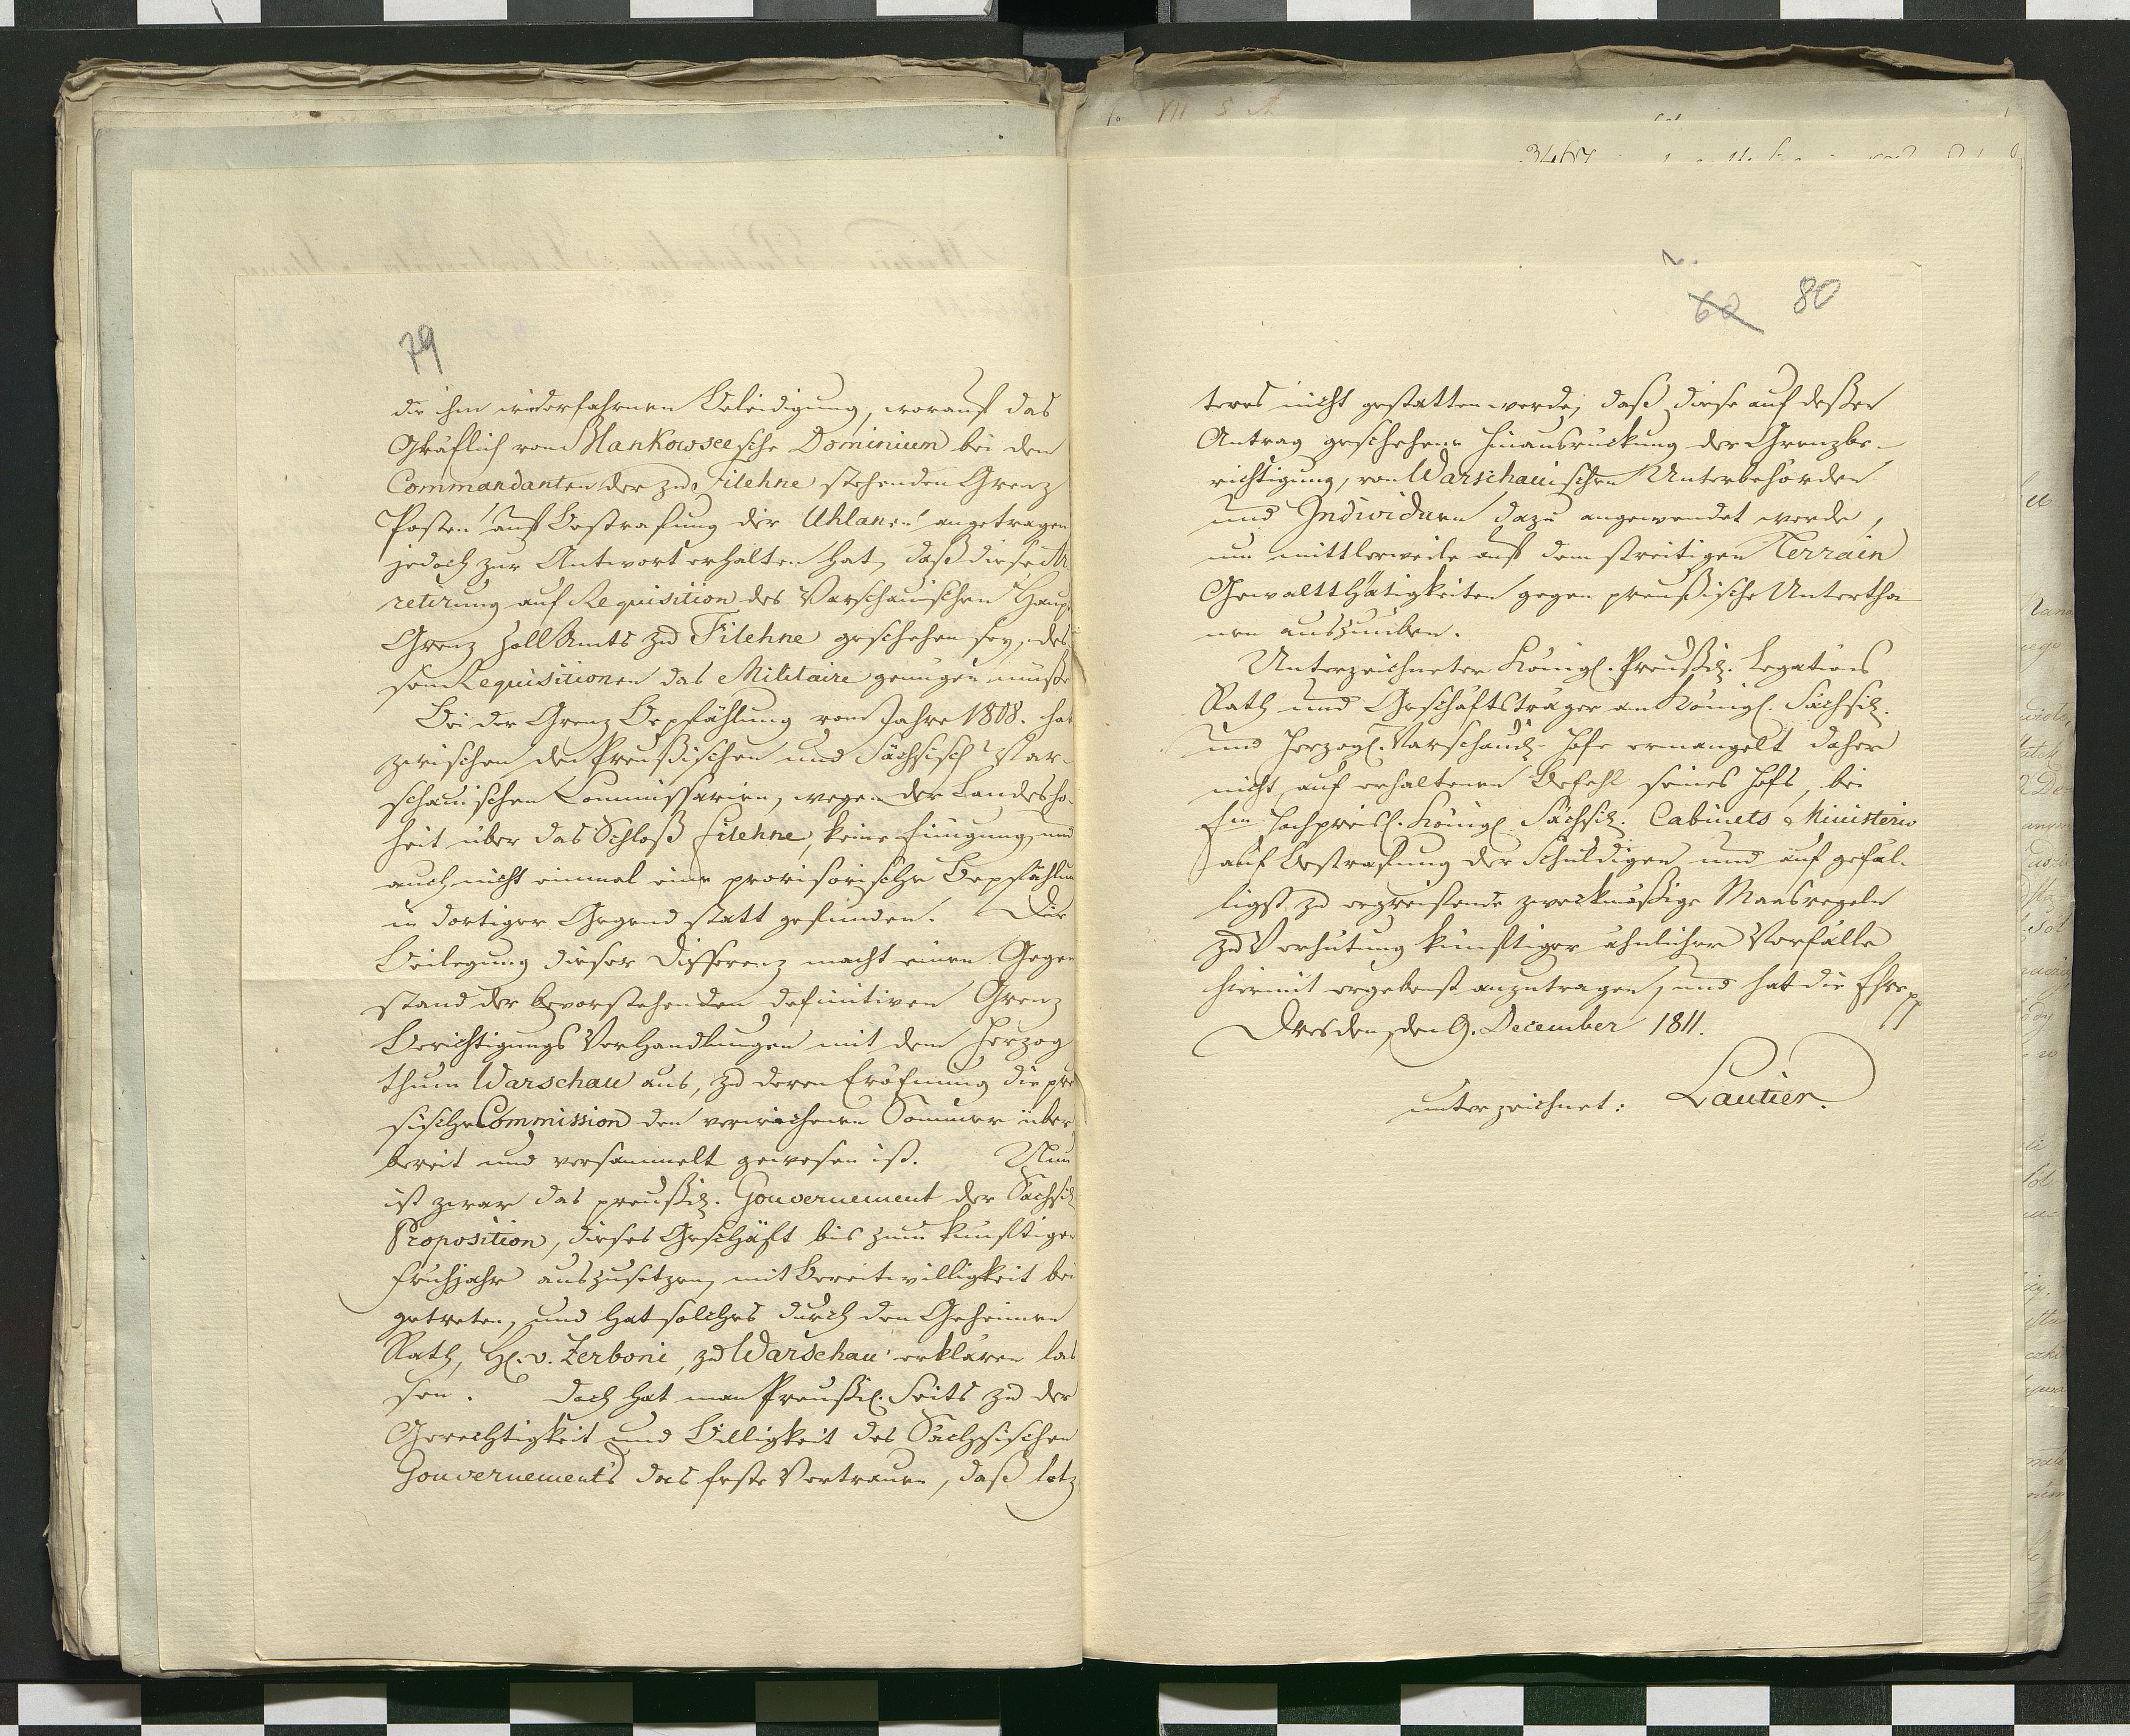 79
die ihm wiederfahrnen Beleidigung, worauf das
Gräflich von Blankowseesche Dominium bei dem
Commandanten der zu Filehne stehenden Grenz
Posten auf Bestrafung der Uhlanen angetragen
jedoch zur Antwort erhalten hat, daß diese Ar
retirung auf Requisition des Warschauischen Haupt
Grenz Zoll Amts zu Filehne geschehen sey, des
sen Requisitionen das Militaire genügen müsse
Bei der Grenz Bepfählung vom Jahre 1808. hat
zwischen den Preußischen und Sächsisch War-
schauischen Commissarien, wegen der Landesho-
heit über das Schloß Filehne, keine Einigung, und
auch nicht einmal eine provisorische Bepfählun
in dortiger Gegend statt gefunden. Die
Beilegung dieser Differenz macht einen Gegen
stand der bevorstehenden definitiven Grenz
Berichtigungs Verhandlungen mit dem Herzog
thum Warschau aus, zu deren Eröfnung die preu
sische Commission den verwichenen Sommer über
bereit und versammelt gewesen ist. Nun
ist zwar das preußis. Gouvernement der Sächsis.
Proposition, dieses Geschäft bis zum künftigen
Frühjahr auszusetzen, mit Bereitwilligkeit bei
getreten, und hat solches durch den Geheimen
Rath, H. v. Zerboni, zu Warschau erklären las
sen. Doch hat man Preußis. Seits zu der
Gerechtigkeit und Billigkeit des Sächsischen
Gouvernements das feste Vertrauen, daß letz
60 80
teres nicht gestatten werde, daß diese auf deßen
Antrag geschehene Hinausrückung der Grenzbe-
richtigung, von Warschauischen Unterbehörden
und Individuen dazu angewendet werde,
um mittlerweile auf dem streitigen Terrain
Gewaltthätigkeiten gegen preußische Untertha-
nen auszuüben.
Unterzeichneter Königl. Preußis. Legations
Rath und Geschäftsträger am Königl. Sächsis.
und Herzogl. Warschauis. Hofe ermangelt daher
nicht auf erhaltenen Befehl seines Hofs, bei
Em Hochpreisl. Königl. Sächsis. Cabinets Ministerio
auf Bestrafung der Schuldigen und auf gefäl-
ligst zu ergreifende zweckmäßige Maasregeln
zu Verhütung künftiger ähnlicher Vorfälle
hiermit ergebenst anzutragen, und hat die Ehre pp
Dresden, den 9. December 1811.
unterzeichnet: Lautier.